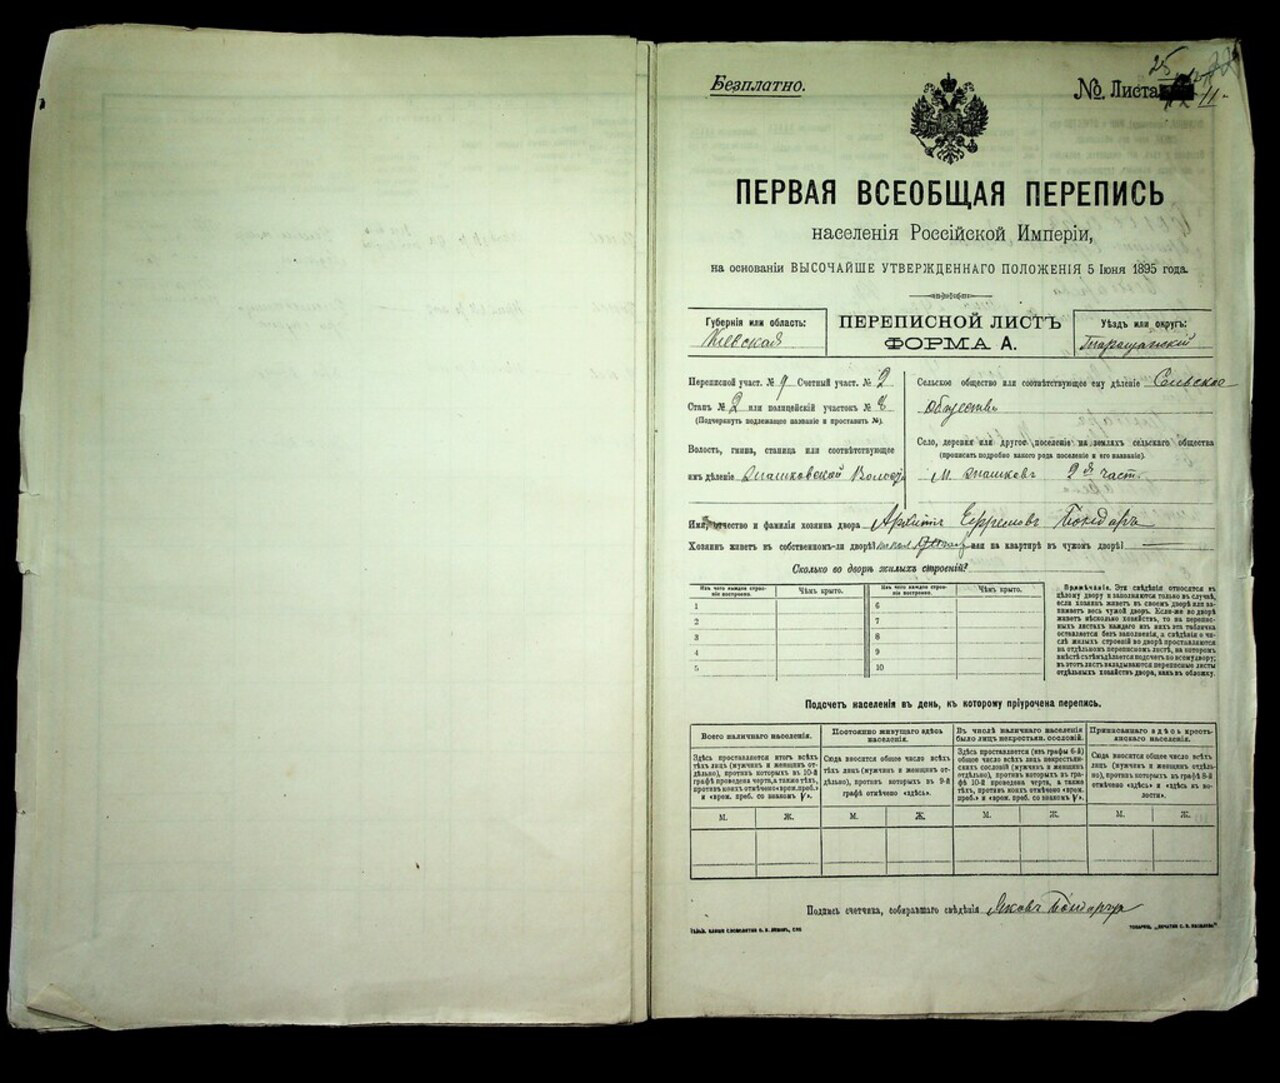 Безплатно.
№ Листа
25
11
ПЕРВАЯ ВСЕОБЩАЯ ПЕРЕПИСЬ
населенія Россійской Имперіи,
на основаніи ВЫСОЧАЙШЕ УТВЕРЖДЕННАГО ПОЛОЖЕНІЯ 5 Іюня 1895 года.
Губернія или область:
Кіевская
ПЕРЕПИСНОЙ ЛИСТЪ
ФОРМА А.
Уѣздъ или округъ:
Таращанскій
Переписной участ. № 9 Счетный участ. № 2
Станъ № 2 или полицейскій участокъ №
(Подчеркнуть подлежащее названіе и проставить №).
Волость, гмина, станица или соотвѣтствующее
имъ дѣленіе Пятиковской Волости
Сельское общество или соотвѣтствующее ему дѣленіе Сельское
Общество
Село, деревня или другое поселеніе на земляхъ сельскаго общества
(прописать подробно какого рода поселеніе и его названіе).
М. 2я часть
Имя, отчество и фамилія хозяина двора Архипъ Ефремовъ Бондарь
Хозяинъ живетъ въ собственномъ-ли дворѣ? или на квартирѣ въ чужомъ дворѣ? —
Сколько во дворѣ жилыхъ строеній?
Изъ чего каждое строеніе построено.
Чѣмъ крыто.
Изъ чего каждое строеніе построено.
Чѣмъ крыто.
1 6
2 7
3 8
4 9
5 10
Примѣчанія. Эти свѣдѣнія относятся къ
цѣлому двору и заполняются только въ случаѣ,
если хозяинъ живетъ въ своемъ дворѣ или за-
нимаетъ весь чужой дворъ. Если-же во дворѣ
живетъ нѣсколько хозяйствъ, то на перепис-
ныхъ листахъ каждаго изъ нихъ эта табличка
оставляется безъ заполненія, а свѣдѣнія о чи-
слѣ жилыхъ строеній во дворѣ проставляются
на отдѣльномъ переписномъ листѣ, на которомъ
вмѣстѣ съ тѣмъ дѣлается подсчетъ по всему двору;
въ этотъ листъ вкладываются переписные листы
отдѣльныхъ хозяйствъ двора, какъ въ обложку.
Подсчетъ населенія въ день, къ которому пріурочена перепись.
Всего наличнаго населенія.
Здѣсь проставляется итогъ всѣхъ
тѣхъ лицъ (мужчинъ и женщинъ от-
дѣльно), противъ которыхъ въ 10-й
графѣ проведена черта, а также тѣхъ,
противъ коихъ отмѣчено «врем. преб.»
и «врем. преб. со знакомъ V».
Постоянно живущаго здѣсь
населенія.
Сюда вносится общее число всѣхъ
тѣхъ лицъ (мужчинъ и женщинъ от-
дѣльно), противъ которыхъ въ 9-й
графѣ отмѣчено «здѣсь».
Въ числѣ наличнаго населенія
было лицъ некрестьян. сословій.
Здѣсь проставляется (изъ графы 6-й)
общее число всѣхъ лицъ некрестьян-
скихъ сословій (мужчинъ и женщинъ
отдѣльно), противъ которыхъ въ гра-
фѣ 10-й проведена черта, а также
тѣхъ, противъ коихъ отмѣчено «врем.
преб.» и «врем. преб. со знакомъ V».
Приписаннаго здѣсь кресть-
янскаго населенія.
Сюда вносится общее число всѣхъ
лицъ (мужчинъ и женщинъ отдѣль-
но), противъ которыхъ въ графѣ 8-й
отмѣчено «здѣсь» и «здѣсь въ во-
лости».
М. Ж. М. Ж. М. Ж. М. Ж.
Подпись счетчика, собиравшаго свѣдѣнія Яковъ Бондарчук